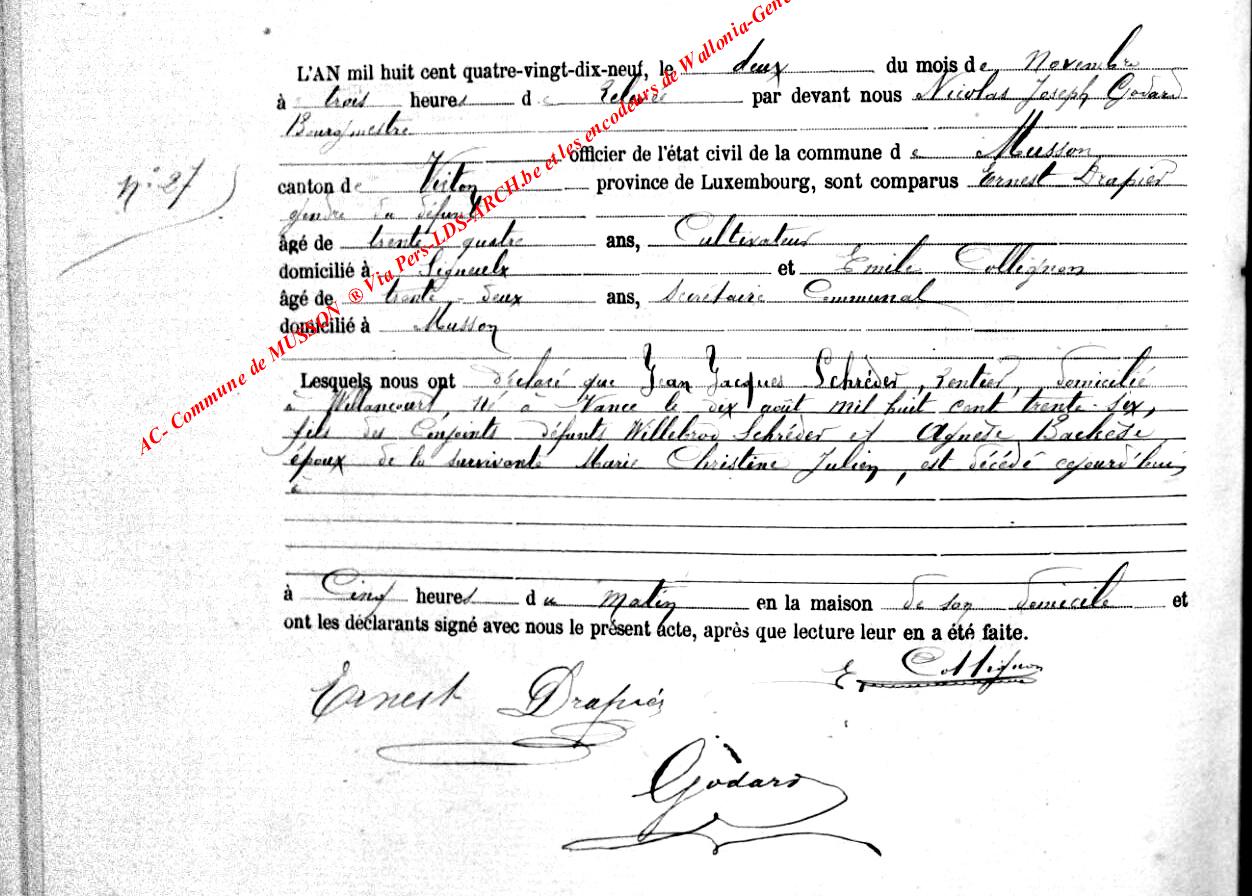 L'AN mil huit cent quatre-vingt-dix-neuf, le deux du mois de Novembre
à trois heures de par devant nous Nicolas Joseph Godard
Bourgmestre
officier de l'état civil de la commune de Musson
n° 27
canton de Virton province de Luxembourg, sont comparus Ernest Drapier
gendre du défunt
âgé de trente quatre ans, Cultivateur
domicilié à Signeulx et Emile Collignon
âgé de trente-deux ans, Secrétaire Communal
domicilié à Musson
Lesquels nous ont déclaré que Jean Jacques Schréder, Rentier, domicilié
à Willancourt, né à Vance le dix août mil huit cent trente-six,
fils des Conjoints défunts Willebrod Schréder et Agnèse
époux de la survivante Marie Christine Julien, est décédé cejourd'hui
à Cinq heures du matin en la maison de son domicile et
ont les déclarants signé avec nous le présent acte, après que lecture leur en a été faite.
Ernest Drapier
E Collignon
Godard
AC- Commune de MUSSON ® Via Pers-LDS-ARCH.be et les encodeurs de Wallonia-Gene